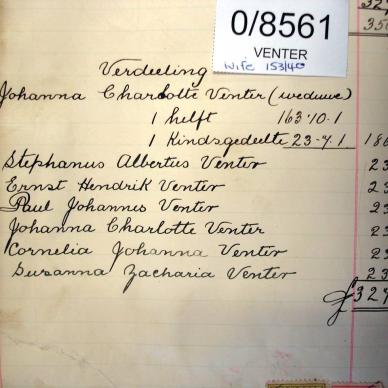 327
350
0/8561
VENTER
Wife 153/40
Verdeeling
Johanna Charlotte Venter (weduwe)
1 helft 163·10·1
1 Kindsgedeelte 23-7·1 186
Stephanus Albertus Venter 23
Ernst Hendrik Venter 23
Paul Johannus Venter 23
Johanna Charlotte Venter 23
Cornelia Johanna Venter 23
Susanna Zacharia Venter 23
£327